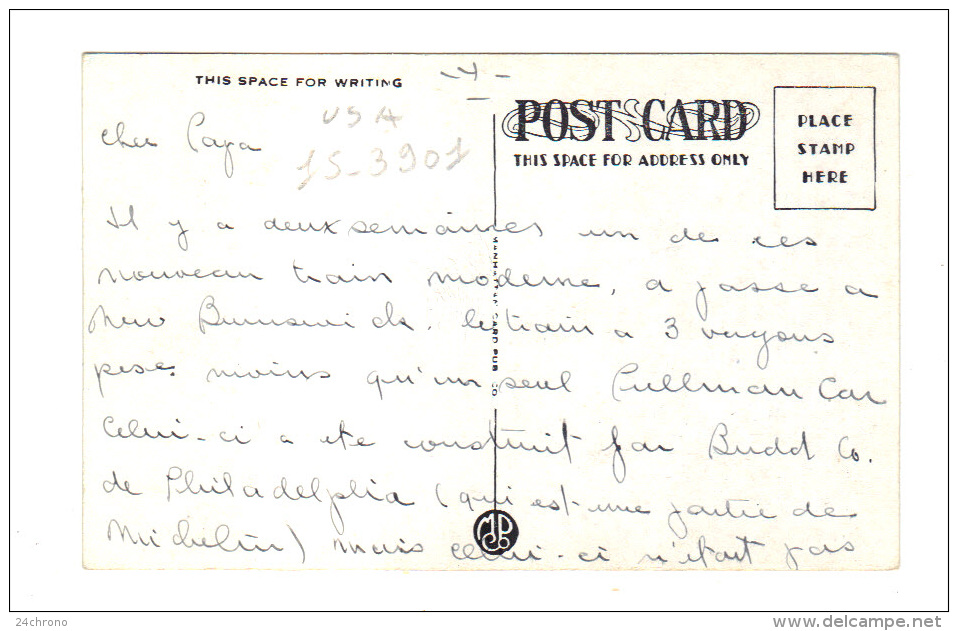 THIS SPACE FOR WRITING
-4-
USA
15-3901
POST CARD
THIS SPACE FOR ADDRESS ONLY
PLACE
STAMP
HERE
cher Papa
Il y a deux semaines un de ces
nouveau train moderne, a passe a
New Brunswick. le train a 3 vagons
pese moins qu'un seul Pullman Car
Celui-ci a ete construit par Budd Co.
de Philadelphia (qui est une partie de
Michelin) mais celui-ci n'etait pas
MANHATTAN CARD PUB. CO.
24chrono
delcampe.net